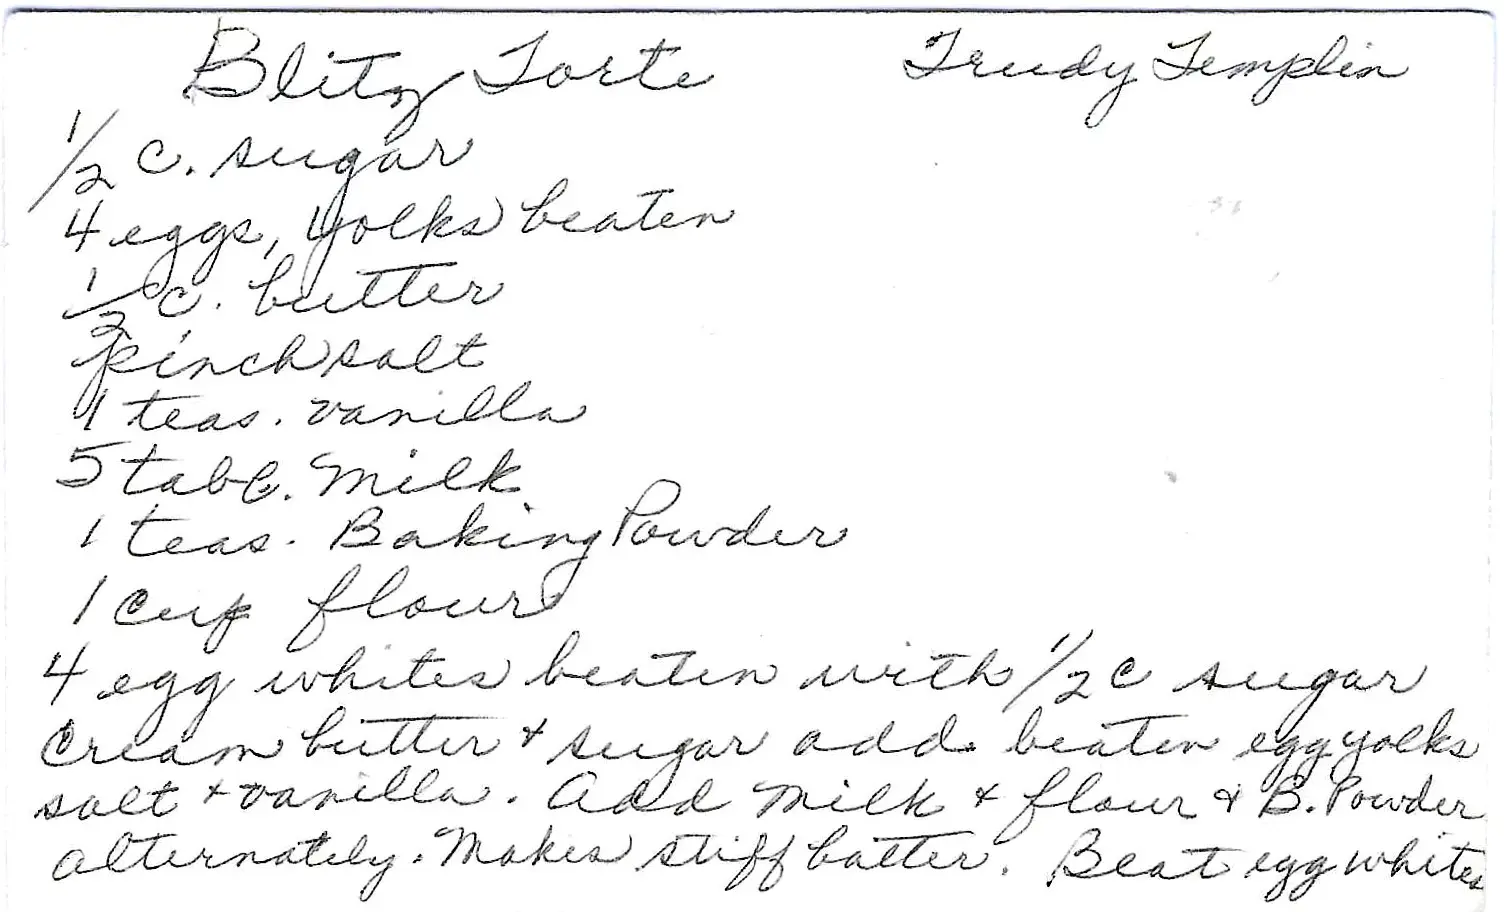 Blitz Torte Trudy Templin
1/2 c. sugar
4 eggs, yolks beaten
1/2 c. butter
pinch salt
1 teas. vanilla
5 tabl. milk
1 teas. Baking Powder
1 cup flour
4 egg whites beaten with 1/2 c sugar
Cream butter + sugar add beaten egg yolks
salt + vanilla. Add milk + flour + B. Powder
alternately. Makes stiff batter. Beat egg whites